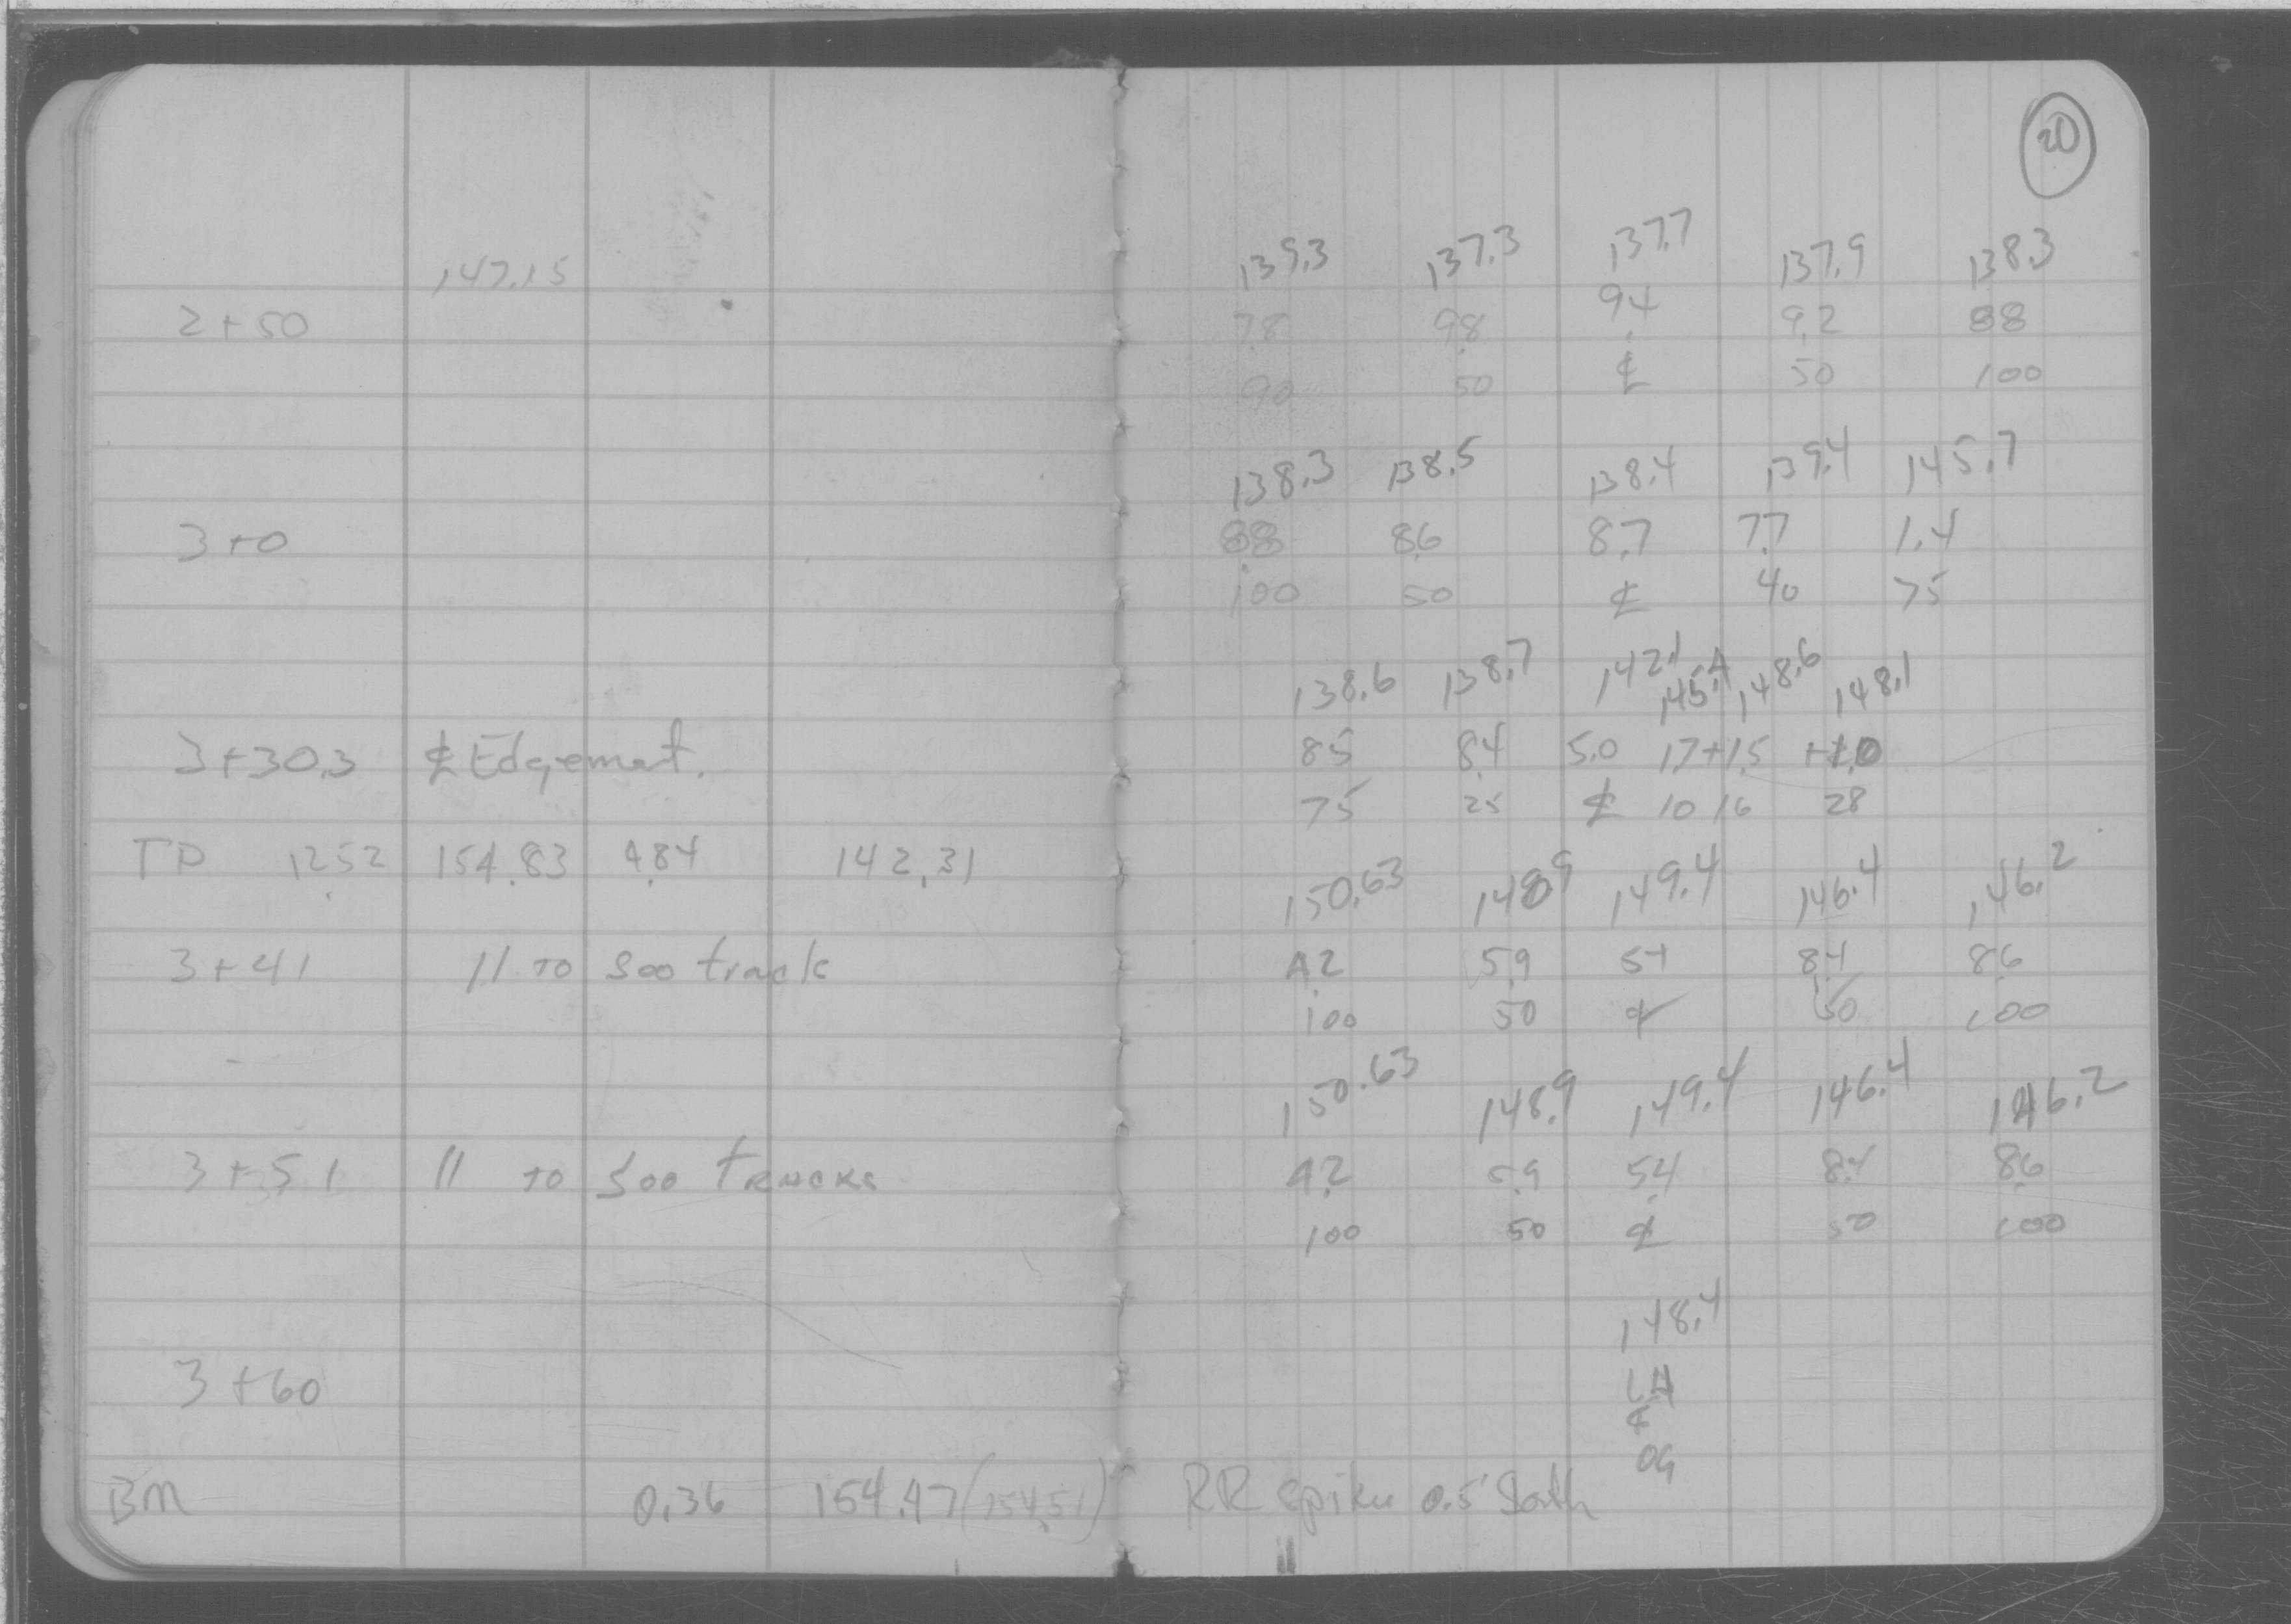 20
147.15 139.3 137.3 137.7 137.9 138.3
2+50 7.8 9.8 9.4 9.2 8.8
90 50 ℄ 50 100
138.3 138.5 138.4 139.4 145.7
3+0 8.8 8.6 8.7 7.7 1.4
100 50 ℄ 40 75
138.6 138.7 142.1 145.4 148.6 148.1
3+30.3 ℄ Edgemat. 8.5 8.4 5.0 1.7 +1.5 +1.0
75 25 ℄ 10 16 28
TP 12.52 154.83 4.84 142.31
150.63 148.9 149.4 146.4 146.2
3+41 // to Soo track 4.2 5.9 5.4 8.4 8.6
100 50 ℄ 50 100
150.63 148.9 149.4 146.4 146.2
3+51 // to Soo tracks 4.2 5.9 5.4 8.4 8.6
100 50 ℄ 50 100
148.4
3+60
℄
OG
BM 0.36 154.47 (154.51) RR spike 0.5' South